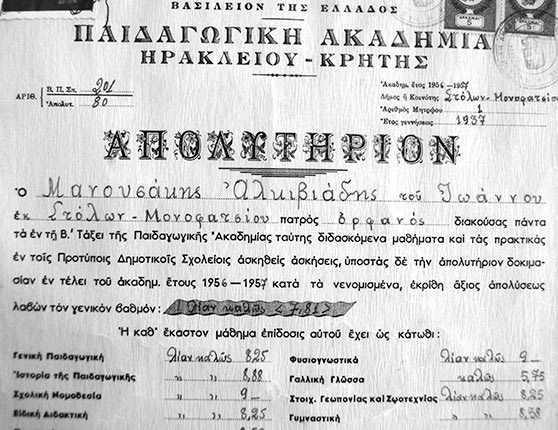 ΒΑΣΙΛΕΙΟΝ ΤΗΣ ΕΛΛΑΔΟΣ
ΠΑΙΔΑΓΩΓΙΚΗ ΑΚΑΔΗΜΙΑ
ΗΡΑΚΛΕΙΟΥ - ΚΡΗΤΗΣ
ΑΡΙΘ. Β. Π. Σπ. 201
Ἀπολυτ. 80
Ἀκαδημ. ἔτος 1956 - 1957
Δῆμος ἢ Κοινότης Στόλων-Μονοφατσίου
Ἀριθμὸς Μητρῴου 1
Ἔτος γεννήσεως 1937
ΑΠΟΛΥΤΗΡΙΟΝ
Ὁ Μανουσάκης Ἀλκιβιάδης τοῦ Ἰωάννου
ἐκ Στόλων-Μονοφατσίου πατρὸς ὀρφανός διακούσας πάντα
τὰ ἐν τῇ Β.' Τάξει τῆς Παιδαγωγικῆς Ἀκαδημίας ταύτης διδασκόμενα μαθήματα καὶ τὰς πρακτικὰς
ἐν τοῖς Προτύποις Δημοτικοῖς Σχολείοις ἀσκηθεὶς ἀσκήσεις, ὑποστὰς δὲ τὴν ἀπολυτήριον δοκιμα-
σίαν ἐν τέλει τοῦ ἀκαδημ. ἔτους 1956 - 1957 κατὰ τὰ νενομισμένα, ἐκρίθη ἄξιος ἀπολύσεως
λαβὼν τὸν γενικὸν βαθμόν: λίαν καλῶς <7,81>
Ἡ καθ' ἕκαστον μάθημα ἐπίδοσις αὐτοῦ ἔχει ὡς κάτωθι:
Γενικὴ Παιδαγωγικὴ λίαν καλῶς 8,25
Ἱστορία τῆς Παιδαγωγικῆς " " 8,88
Σχολικὴ Νομοθεσία " " 9 -
Εἰδικὴ Διδακτικὴ " " 8,25
Φυσιογνωστικὰ λίαν καλῶς 9 -
Γαλλικὴ Γλῶσσα καλῶς 5,75
Στοιχ. Γεωπονίας καὶ Ζῳοτεχνίας λίαν καλῶς 8,25
Γυμναστικὴ " " 8,38